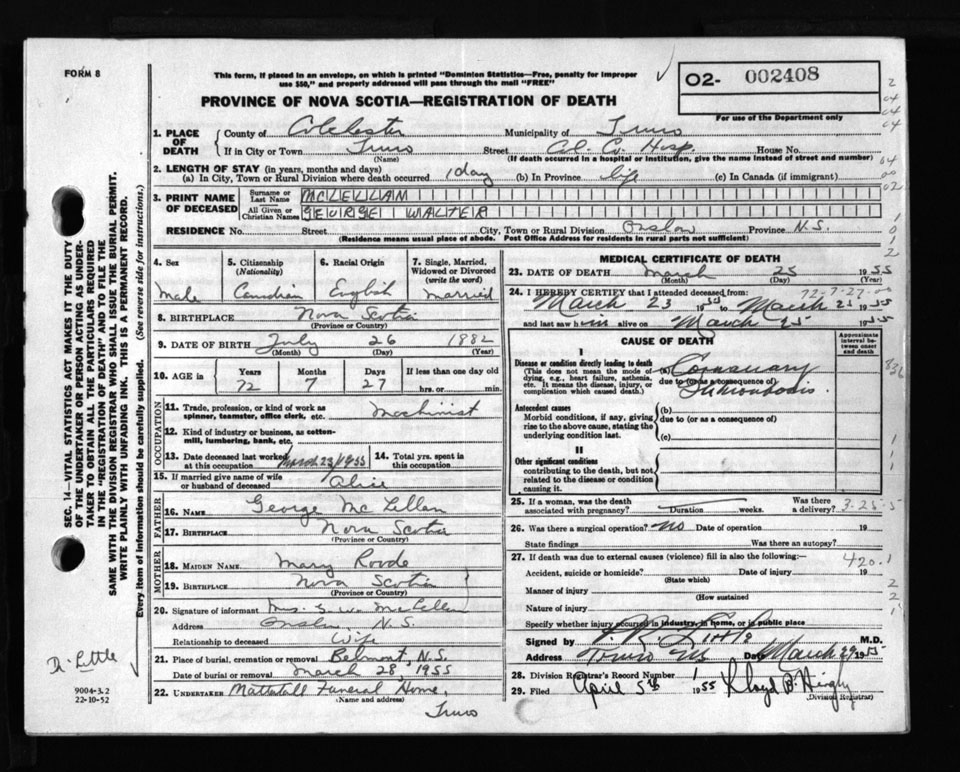 FORM 8
This form, if placed in an envelope, on which is printed "Dominion Statistics—Free, penalty for improper
use $50," and properly addressed will pass through the mail "FREE"
O2- 002408
For use of the Department only
PROVINCE OF NOVA SCOTIA—REGISTRATION OF DEATH
1. PLACE OF DEATH { County of Colchester Municipality of Truro
If in City or Town Truro Street Col. C. Hosp. House No.
(Name) (If death occurred in a hospital or institution, give the name instead of street and number)
2. LENGTH OF STAY (in years, months and days)
(a) In City, Town or Rural Division where death occurred 1 day (b) In Province life (c) In Canada (if immigrant)
3. PRINT NAME OF DECEASED { Surname or Last Name MCLELLAN
All Given or Christian Names GEORGE WALTER
RESIDENCE No. Street City, Town or Rural Division Onslow Province N.S.
(Residence means usual place of abode. Post Office Address for residents in rural parts not sufficient)
4. Sex Male
5. Citizenship (Nationality) Canadian
6. Racial Origin English
7. Single, Married, Widowed or Divorced (write the word) Married
8. BIRTHPLACE Nova Scotia
(Province or Country)
9. DATE OF BIRTH July 26 1882
(Month) (Day) (Year)
10. AGE in { Years 72 Months 7 Days 27 If less than one day old
hrs. or min.
OCCUPATION
11. Trade, profession, or kind of work as spinner, teamster, office clerk, etc. Mechinist
12. Kind of industry or business, as cotton-mill, lumbering, bank, etc.
13. Date deceased last worked at this occupation March 23/1955
14. Total yrs. spent in this occupation
15. If married give name of wife or husband of deceased Alice
FATHER
16. NAME George McLellan
17. BIRTHPLACE Nova Scotia
(Province or Country)
MOTHER
18. MAIDEN NAME Mary Roode
19. BIRTHPLACE Nova Scotia
(Province or Country)
20. Signature of informant Mrs. G. W. McLellan
Address Onslow, N.S.
Relationship to deceased Wife
21. Place of burial, cremation or removal Belmont, N.S.
Date of burial or removal March 28, 1955
22. UNDERTAKER Mattatall Funeral Home,
(Name and address)
Truro
MEDICAL CERTIFICATE OF DEATH
23. DATE OF DEATH March 25 1955
(Month) (Day) (Year)
24. I HEREBY CERTIFY that I attended deceased from:
March 23 1955 to March 25 1955
and last saw him alive on March 25 1955
CAUSE OF DEATH
Approximate interval between onset and death
I
Disease or condition directly leading to death
(This does not mean the mode of dying, e.g., heart failure, asthenia, etc. It means the disease, injury, or complication which caused death.)
(a) Coronary
due to (or as a consequence of)
Thrombosis
Antecedent causes
Morbid conditions, if any, giving rise to the above cause, stating the underlying condition last.
(b)
due to (or as a consequence of)
(c)
II
Other significant conditions
contributing to the death, but not related to the disease or condition causing it.
25. If a woman, was the death associated with pregnancy? Duration weeks. Was there a delivery? 3-25-5
26. Was there a surgical operation? no Date of operation 19
State findings Was there an autopsy?
27. If death was due to external causes (violence) fill in also the following:— 420.1
Accident, suicide or homicide? Date of injury 19
(State which)
Manner of injury
(How sustained)
Nature of injury
Specify whether injury occurred in industry, in home, or in public place
Signed by Little M.D.
Address Truro NS Date March 29 1955
28. Division Registrar's Record Number
29. Filed April 5th 1955 Lloyd B.
(Division Registrar)
SEC. 14—VITAL STATISTICS ACT MAKES IT THE DUTY
OF THE UNDERTAKER OR PERSON ACTING AS UNDER-
TAKER TO OBTAIN ALL THE PARTICULARS REQUIRED
IN THE "REGISTRATION OF DEATH" AND TO FILE THE
SAME WITH THE DIVISION REGISTRAR WHO SHALL ISSUE THE BURIAL PERMIT.
WRITE PLAINLY WITH UNFADING INK. THIS IS A PERMANENT RECORD.
Every item of information should be carefully supplied. (See reverse side for instructions.)
Dr. Little
9004-3.2
22-10-52